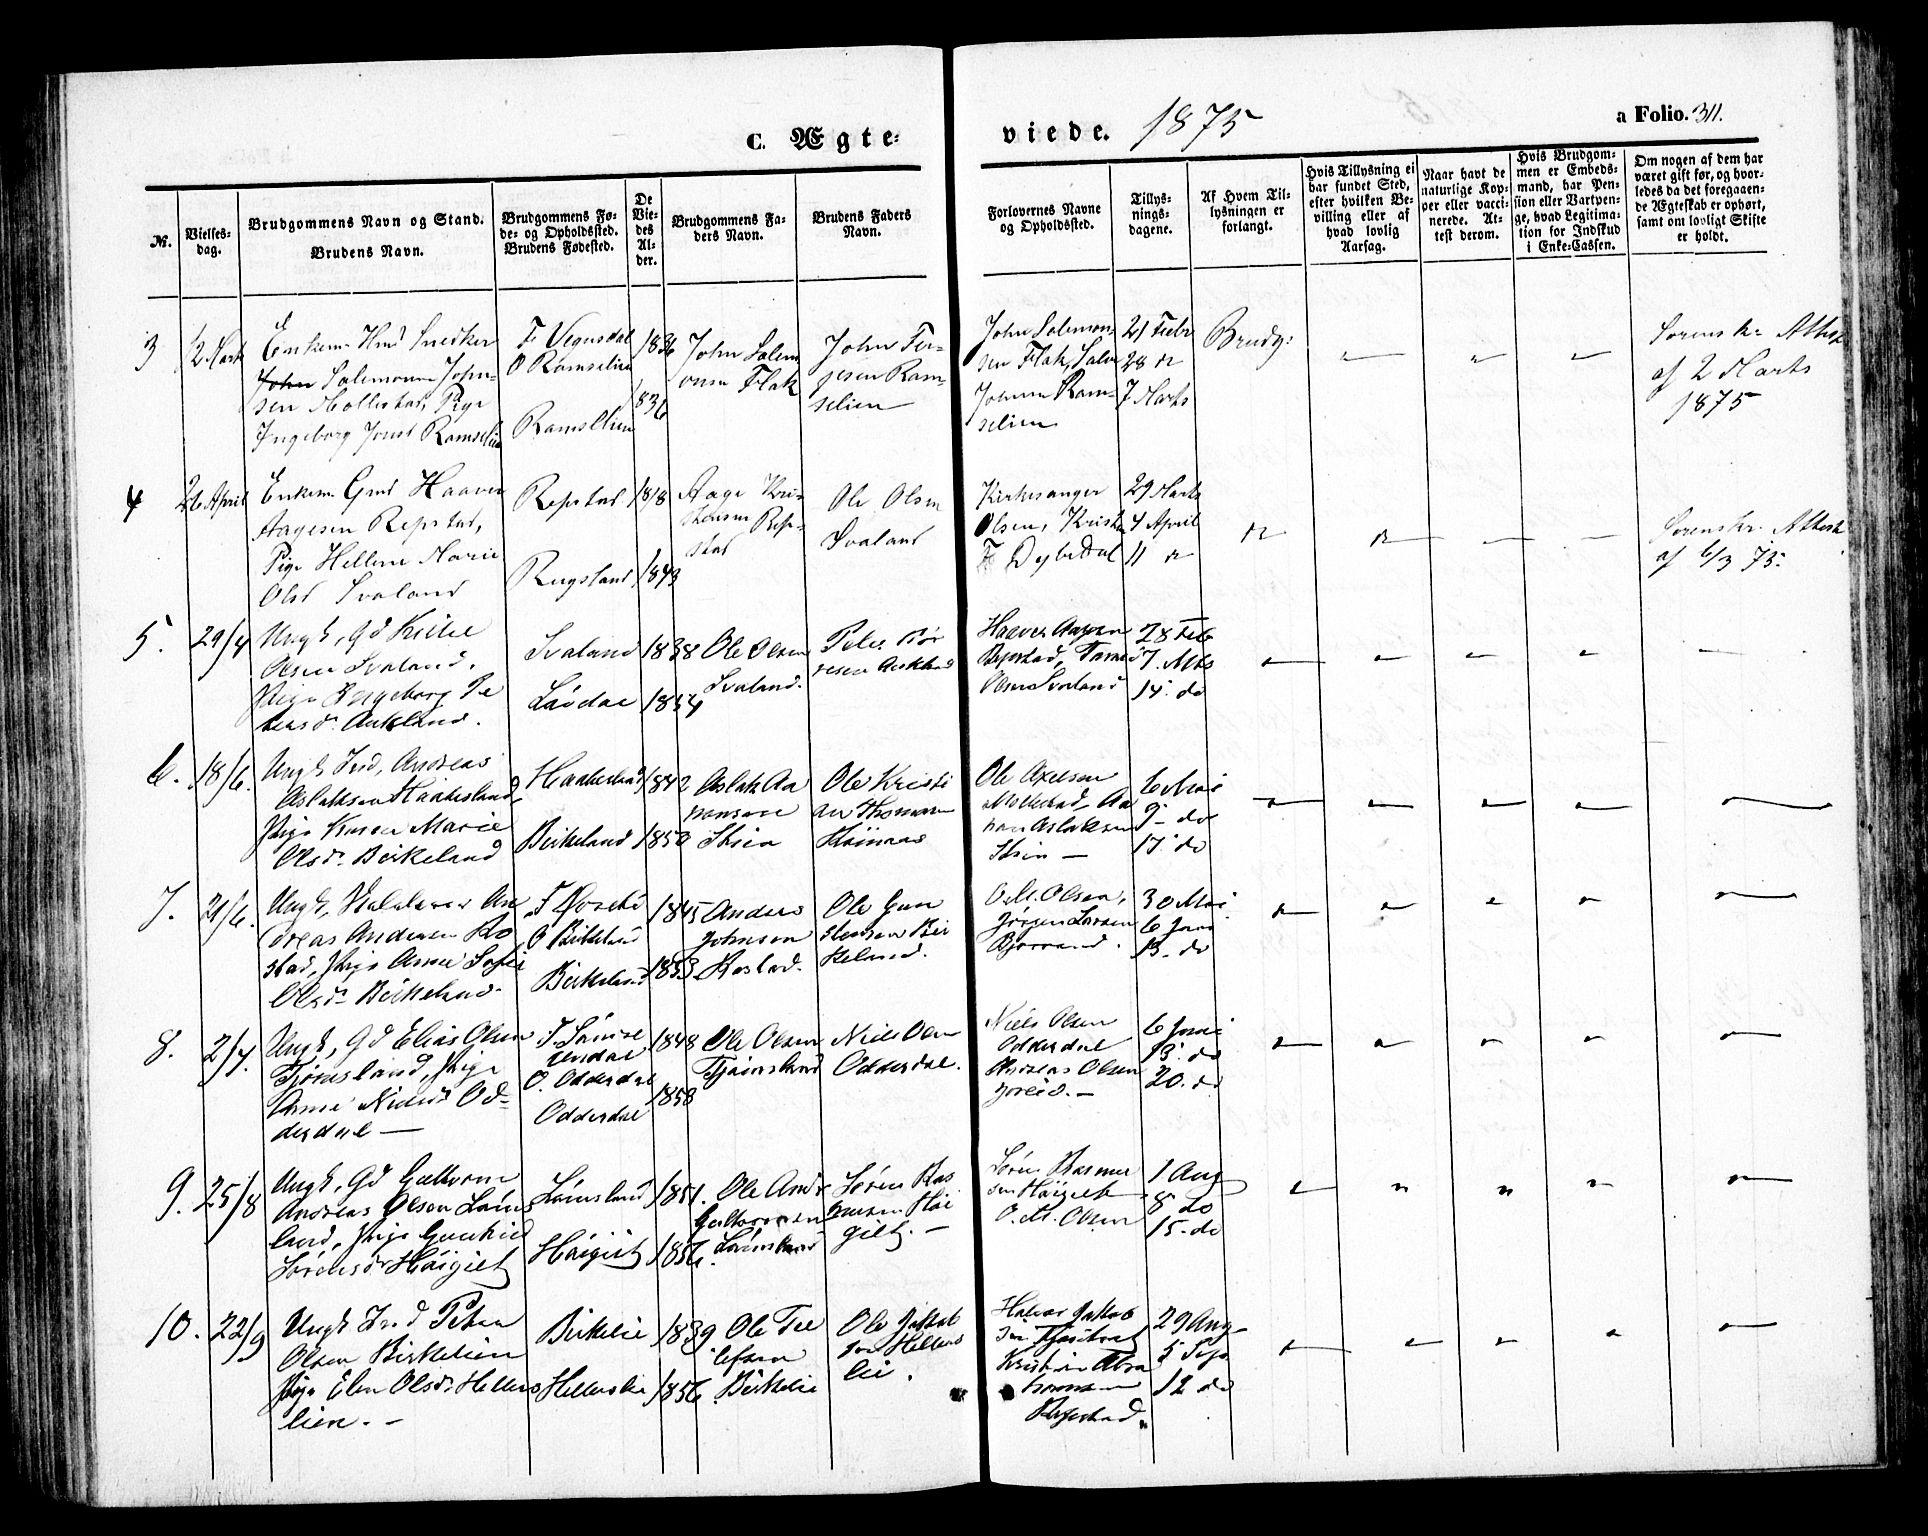 C. Ægte-
viede. 1875
a Folio. 311.
No.
Vielses-
dag.
Brudgommens Navn og Stand.
Brudens Navn.
Brudgommens Fø-
de- og Opholdssted.
Brudens Fødested.
De
Vie-
des
Al-
der.
Brudgommens Fa-
ders Navn.
Brudens Faders
Navn.
Forlovernes Navne
og Opholdssted.
Tillys-
nings-
dagene.
Af Hvem Til-
lysningen er
forlangt.
Hvis Tillysning ei
har fundet Sted,
efter hvilken Be-
villing eller af
hvad lovlig
Aarsag.
Naar havt de
naturlige Kop-
per eller vacci-
nerede. At-
test derom.
Hvis Brudgom-
men er Embeds-
mand, har Pen-
sion eller Vartpen-
ge, hvad Legitima-
tion for Indskud
i Enke-Cassen.
Om nogen af dem har
været gift før, og hvor-
ledes da det foregaaen-
de Ægteskab er ophørt,
samt om lovligt Skifte
er holdt.
3
12 Marts
Enkem. Hmd Snedker
John Salemon John-
sen Mollestad, Pige
Ingeborg Jonsd Ramselien
F Vegusdal
O Ramselien
Ramselien
1836
1836
John Salem
onsen Flak
John Ter-
jesen Ram-
selien
John Salemon-
sen Flak, Salve
Johnsen Ram-
selien
21 Febr
28 "
7 Marts
Brudg:
Sorenskr. Attest
af 2 Marts
1875
4
26 April
Enkem. Gmd Haaver
Aagesen Repstad,
Pige Hellene Marie
Olsd Svaland
Repstad
Rugsland
1818
1843
Aage Kris-
tensen Rep-
stad
Ole Olsen
Svaland
Kirkesanger
Olsen, Kristen
T Dybedal
29 Marts
4 April
11 "
Sorenskr. Attest
af 6/3 75.
5.
29/4
Ungk, Gd Kittel
Olsen Svaland.
Pige Ingeborg Pe
tersdr. Aukland.
Svaland
Løvdal
1838
1854
Ole Olsen
Svaland.
Peder Tør
resen Aukland
Haaver Aagesen
Repstad,
Olsen Svaland
28 Feb
7. Mts
14. do
6.
18/6.
Ungk Ind, Andreas
Aslaksen Haakesland,
Pige Karen Marie
Olsdr. Birkeland
Haakesland
Birkeland
1842
1850
Aslak Aa
nonsen
Stien
Ole Kristi
an Thomasen
Ole Axelsen
Mollestad, Aa
non Aslaksen
Stien —
6 Mai
9 - do
17. do
7.
21/6.
Ungk, Valdemar An
dreas Andersen Ro
stad, Pige Anne Sofie
Olsdr. Birkeland.
O Birkeland
Birkeland
1845
1853
Anders
Johnsen
Rostad.
Ole Gun
stensen Bir
keland.
O. M. Olsen,
Jørgen Larsen
Bjorvand.
30 Mai
6 Juni
13. do
8.
2/7.
Ungk, Gd Elias Olsen
Tjømsland, Pige
Anne Nielsdr Od-
derdal —
O. Odderdal
Odderdal
1848
1858
Ole Olsen
Tjømsland
Niels Olsen
Odderdal.
Niels Olsen
Odderdal
Andreas Olsen
6 Juni
13. do
20. do
9.
25/8
Ungk, Gd Guttorm
Andreas Olsen Løms
land, Pige Gunhild
Sørensdr Høigilt
Lømsland
Høigilt
1851.
1856.
Ole Andr
Guttormsen
Lømsland
Søren Ras
musen Høi
gilt. —
Søren Rasmu
sen Høigilt
O. M. Olsen
1 Aug
8 do
15. do
10.
22/9
Ungk Ind Peter
Olsen Birkelien
Pige Elen Olsdr. Hellers
lien. –
Birkelie
Hellerslie
1839
1856.
Ole Tel
lefsen
Birkelie
Ole Jakob
sen Hellers
lie.
Halvor Jakob
sen
Kristian Abra
hamsen
Repstad.
29 Aug
5 Sept
12 do